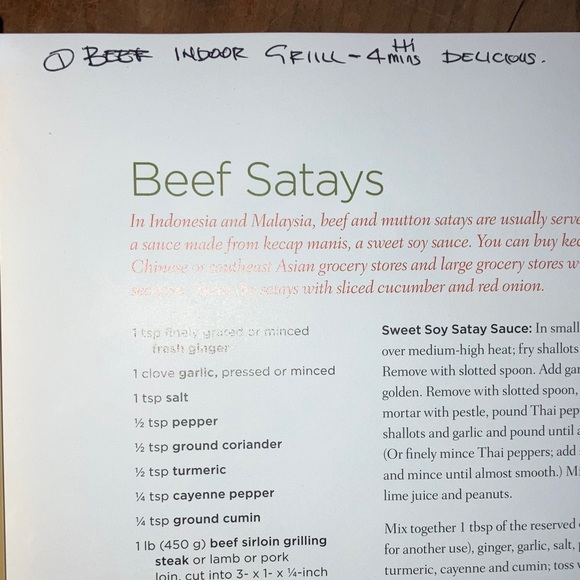 ① BEEF INDOOR GRIILL - 4 mins DELICIOUS.
HI
Beef Satays
In Indonesia and Malaysia, beef and mutton satays are usually serve
a sauce made from kecap manis, a sweet soy sauce. You can buy kec
Chinese or southeast Asian grocery stores and large grocery stores w
satays with sliced cucumber and red onion.
1 tsp finely grated or minced
fresh ginger
1 clove garlic, pressed or minced
1 tsp salt
½ tsp pepper
½ tsp ground coriander
½ tsp turmeric
¼ tsp cayenne pepper
¼ tsp ground cumin
1 lb (450 g) beef sirloin grilling
steak or lamb or pork
loin, cut into 3- x 1- x ¼-inch
Sweet Soy Satay Sauce: In small
over medium-high heat; fry shallots
Remove with slotted spoon. Add gar
golden. Remove with slotted spoon,
mortar with pestle, pound Thai pep
shallots and garlic and pound until a
(Or finely mince Thai peppers; add
and mince until almost smooth.) M
lime juice and peanuts.
Mix together 1 tbsp of the reserved
for another use), ginger, garlic, salt,
turmeric, cayenne and cumin; toss